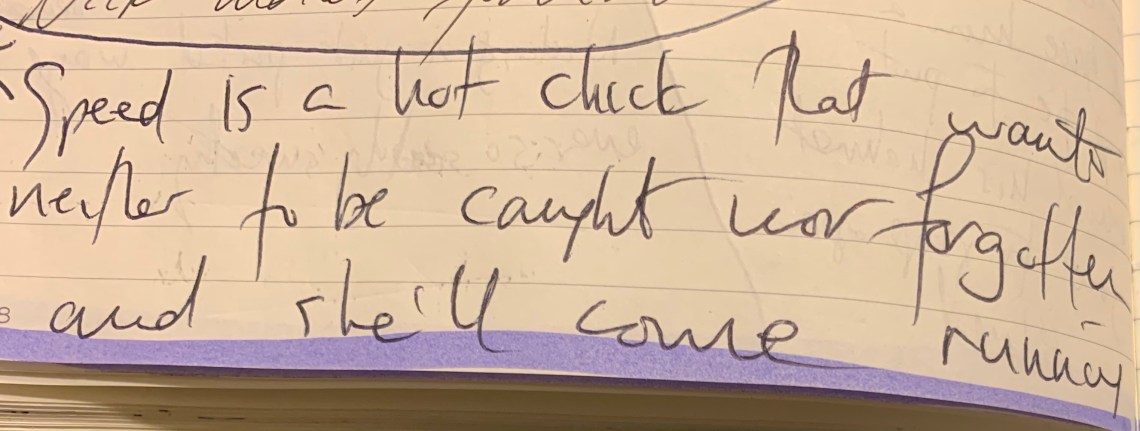 Speed is a hot chick that wants
neither to be caught nor forgotten
and she'll come running